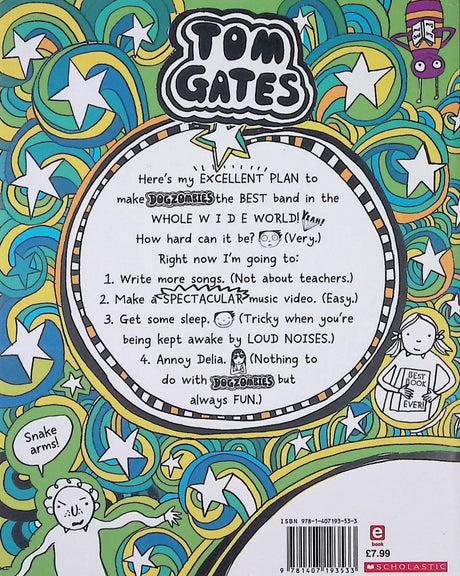 TOM
GATES
Here's my EXCELLENT PLAN to
make DOGZOMBIES the BEST band in the
WHOLE W I D E WORLD! YEAH!
How hard can it be? (Very.)
Right now I'm going to:
1. Write more songs. (Not about teachers.)
2. Make a SPECTACULAR music video. (Easy.)
3. Get some sleep. (Tricky when you're
being kept awake by LOUD NOISES.)
4. Annoy Delia. (Nothing to
do with DOGZOMBIES but
always FUN.)
BEST
BOOK
EVER!
Snake
arms!
ISBN 978-1-407193-53-3
9 781407 193533
e
book
£7.99
SCHOLASTIC